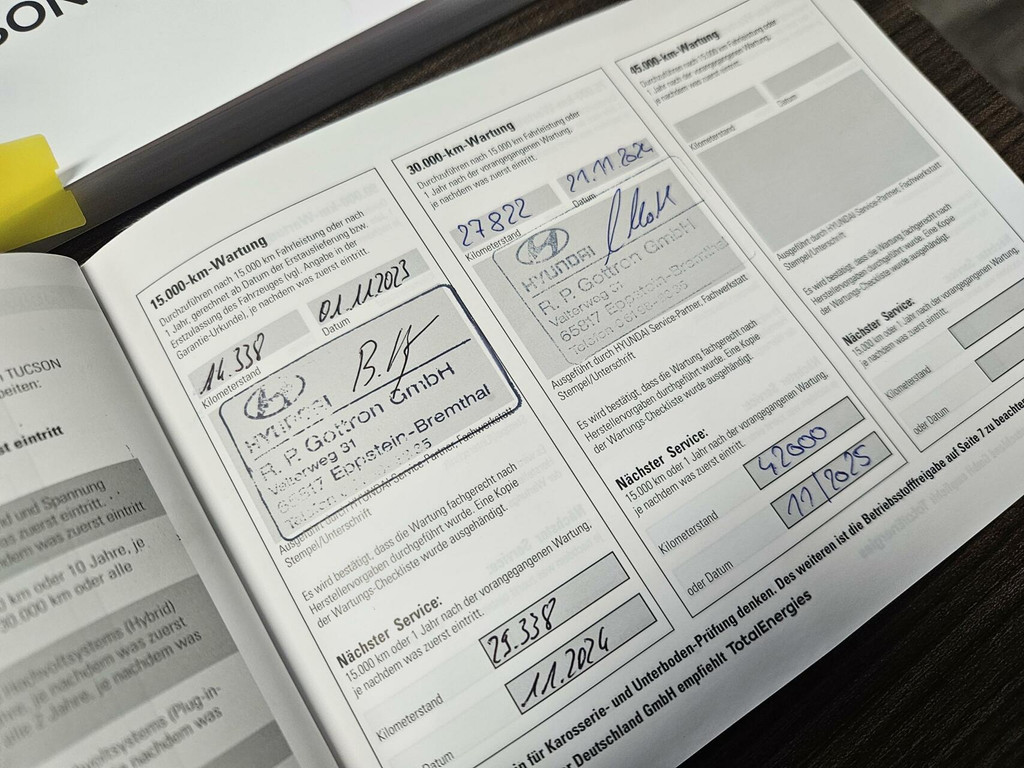 SON
TUCSON
eiten:
st eintritt
nd und Spannung
as zuerst eintritt.
chdem was zuerst eintritt
km oder 10 Jahre, je
30.000 km oder alle
Hochvoltsystems (Hybrid)
alle 2 Jahre, je nachdem was
(Plug-in-
15.000-km-Wartung
Durchzuführen nach 15.000 km Fahrleistung oder nach
1 Jahr, gerechnet ab Datum der Erstauslieferung bzw.
Erstzulassung des Fahrzeuges (vgl. Angabe in der
Garantie-Urkunde), je nachdem was zuerst eintritt.
14.338
01.11.2023
Kilometerstand
Datum
HYUNDAI
R. P. Gottron GmbH
Valterweg 31
65817 Eppstein-Bremthal
Ausgeführt durch HYUNDAI Service-Partner, Fachwerkstatt
Stempel/Unterschrift
Es wird bestätigt, dass die Wartung fachgerecht nach
Herstellervorgaben durchgeführt wurde. Eine Kopie
der Wartungs-Checkliste wurde ausgehändigt.
Nächster Service:
15.000 km oder 1 Jahr nach der vorangegangenen Wartung,
je nachdem was zuerst eintritt:
29.338
Kilometerstand
11.2024
Datum
30.000-km-Wartung
Durchzuführen nach 15.000 km Fahrleistung oder
1 Jahr nach der vorangegangenen Wartung,
je nachdem was zuerst eintritt.
27822
21.11.2024
Kilometerstand
Datum
HYUNDAI
R. P. Gottron GmbH
Valterweg 31
65817 Eppstein-Bremthal
Ausgeführt durch HYUNDAI Service-Partner, Fachwerkstatt
Stempel/Unterschrift
Es wird bestätigt, dass die Wartung fachgerecht nach
Herstellervorgaben durchgeführt wurde. Eine Kopie
der Wartungs-Checkliste wurde ausgehändigt.
Nächster Service:
15.000 km oder 1 Jahr nach der vorangegangenen Wartung,
je nachdem was zuerst eintritt:
42000
Kilometerstand
11/2025
oder Datum
45.000-km-Wartung
Durchzuführen nach 15.000 km Fahrleistung oder
1 Jahr nach der vorangegangenen Wartung,
je nachdem was zuerst eintritt.
Kilometerstand
Datum
Ausgeführt durch HYUNDAI Service-Partner, Fachwerkstatt
Stempel/Unterschrift
Es wird bestätigt, dass die Wartung fachgerecht nach
Herstellervorgaben durchgeführt wurde. Eine Kopie
der Wartungs-Checkliste wurde ausgehändigt.
Nächster Service:
15.000 km oder 1 Jahr nach der vorangegangenen Wartung,
je nachdem was zuerst eintritt:
Kilometerstand
oder Datum
in für Karosserie- und Unterboden-Prüfung denken. Des weiteren ist die Betriebsstofffreigabe auf Seite 7 zu beachte
r Deutschland GmbH empfiehlt TotalEnergies